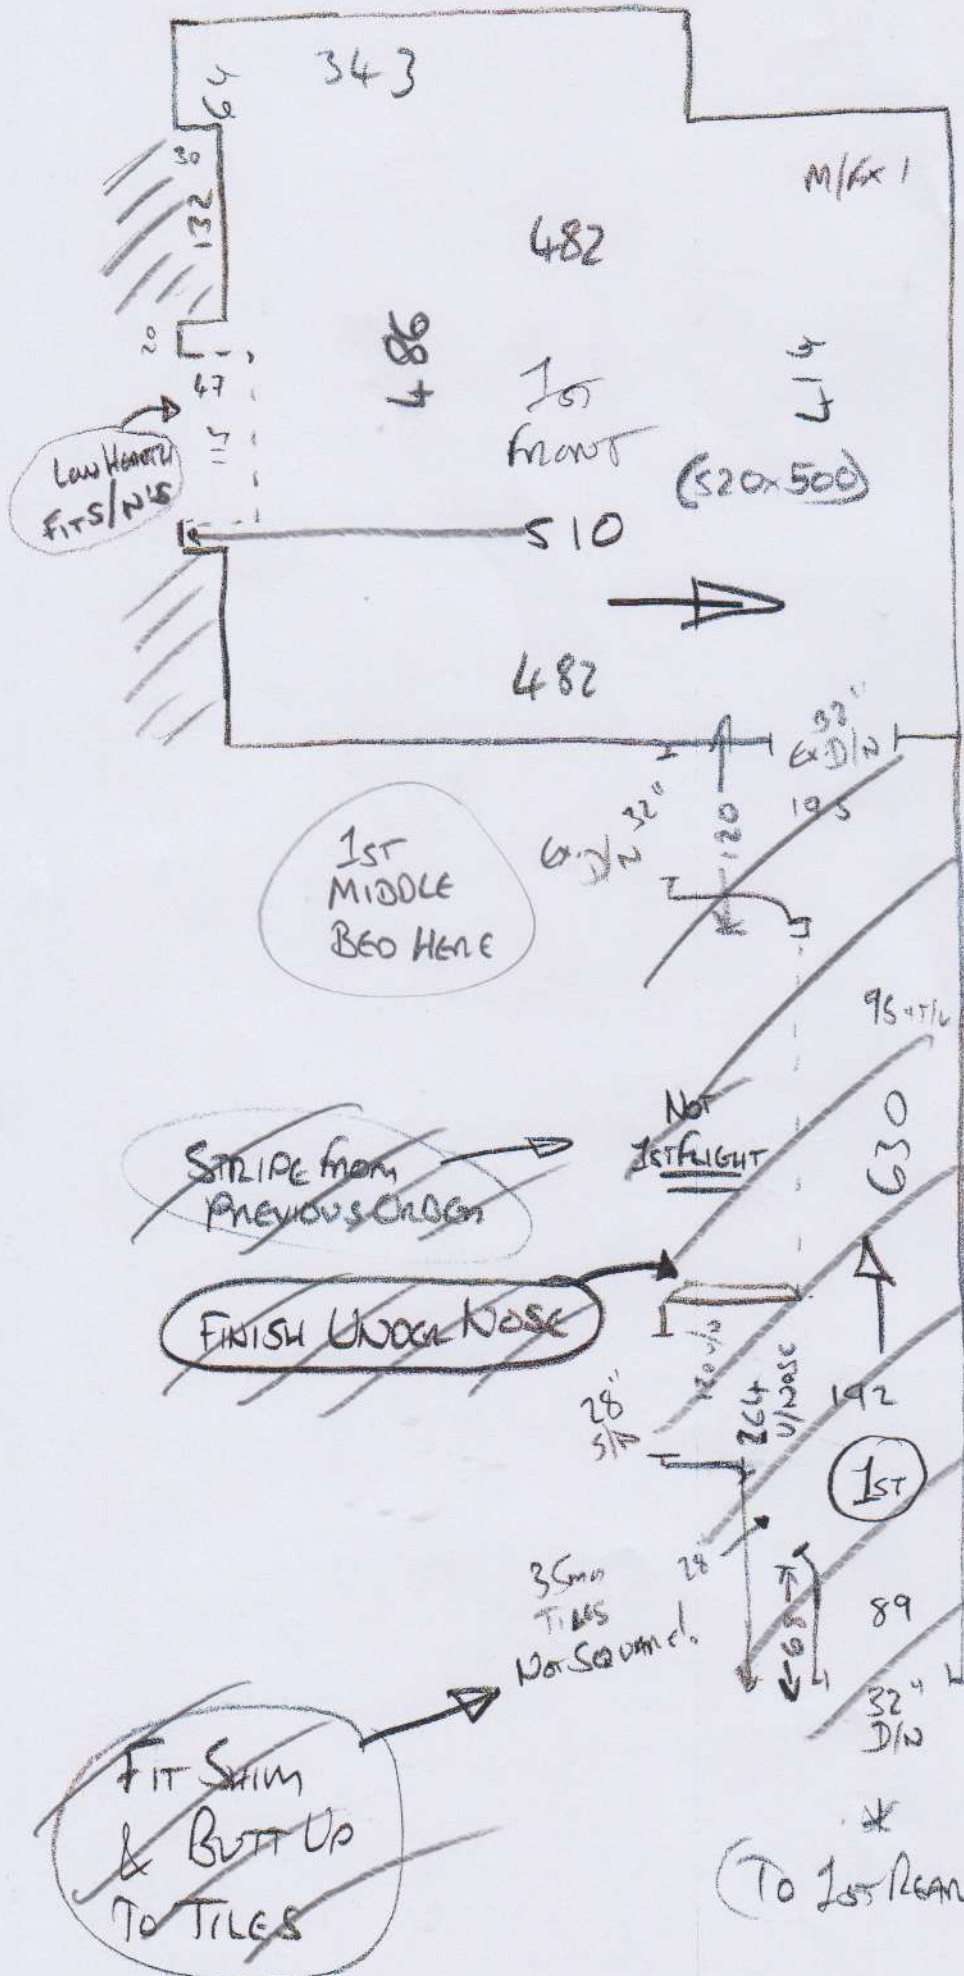 343
64
30
132
M/Ex 1
482
486
20
47
114
414
1ST
FRONT
LOW HEARTH
FIT S/N'S
(520x500)
510
482
32"
Ex D/N
32"
Ex D/N
120
195
1ST
MIDDLE
BED HERE
95 + T/L
NOT
1ST FLIGHT
630
STRIPE FROM
PREVIOUS ORDER
FINISH UNDER NOSE
120 U/N
264
U/NOSE
192
28"
S/N
1ST
35mm
TILES
NOT SQUARE!
28
68
89
32"
D/N
FIT SHIM
& BUTT UP
TO TILES
*
(TO 1ST REAR